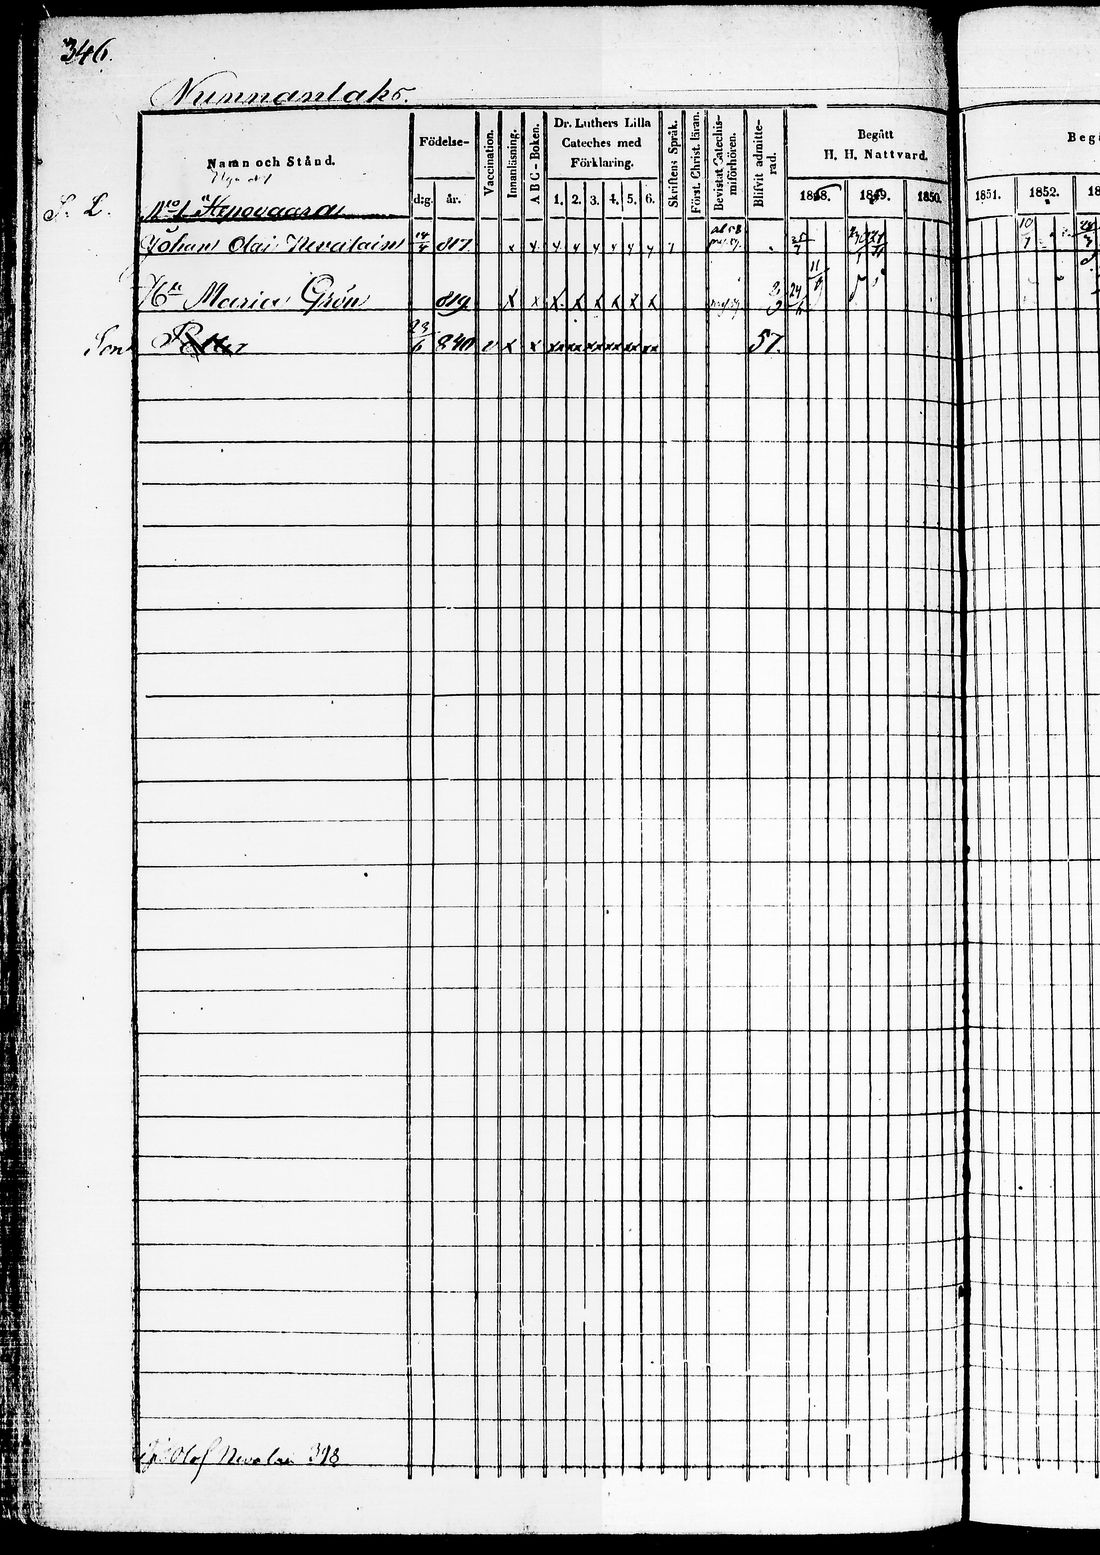 346.
Nunnanlaks.
Namn och Stånd.
Födelse-
d:g. år.
Vaccination.
Innanläsning.
A B C - Boken.
Dr. Luthers Lilla
Cateches med
Förklaring.
1. 2. 3. 4. 5. 6.
Skriftens Språk.
Förist. Christ. läran.
Bevistat Catechis-
miförhören.
Blifvit admitte-
rad.
Begått
H. H. Nattvard.
1848. 1849. 1850.
Beg
1851. 1852. 18
S. L. N:ro 1
Johan Olai Nevalain 817 x x x x x x x x
H:u Maria Grön 819 x x x x x x x x 24/6
Son Petter 23/6 840 v x x 57.
Olof Nevalai 318